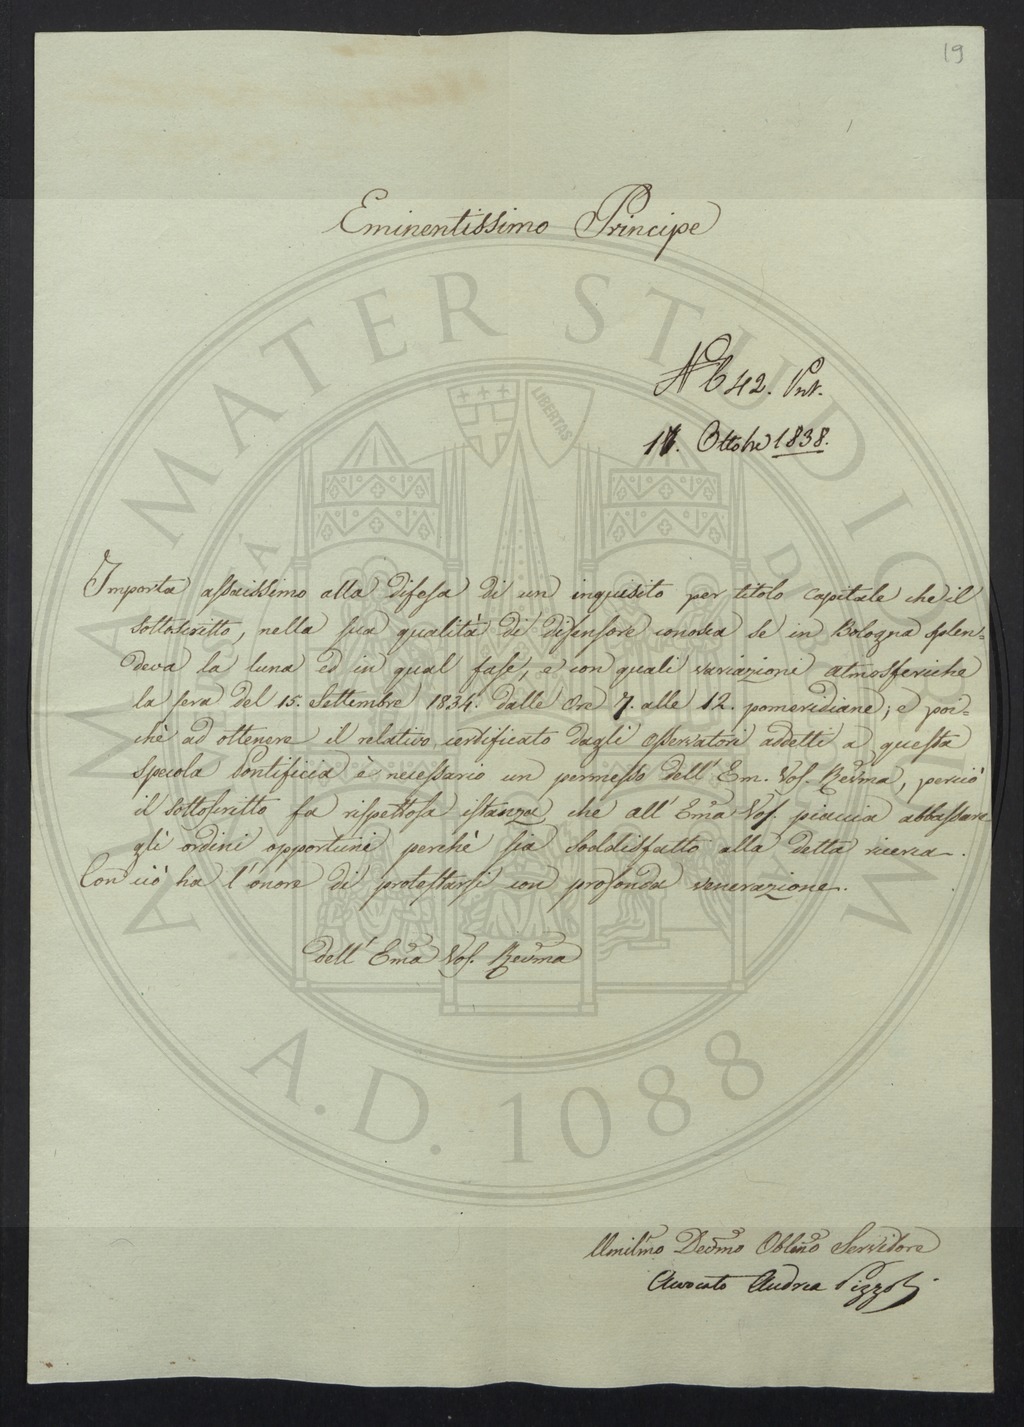 19
Eminentissimo Principe
N 642. Pnt.
17. Ottobre 1838.
Importa assaissimo alla difesa di un inquisito per titolo capitale che il
sottoscritto, nella sua qualità di difensore conosca se in Bologna splen-
deva la luna ed in qual fase, e con quali variazioni atmosferiche
la sera del 15. Settembre 1834. dalle Ore 7. alle 12. pomeridiane; e poi-
chè ad ottenere il relativo certificato dagli Osservatori addetti a questa
Specola Pontificia è necessario un permesso dell' Em. Vos. Revma, perciò
il sottoscritto fa rispettosa istanza che all' Ema Vos. piaccia abbassare
gli ordini opportuni perchè sia soddisfatto alla detta ricerca.
Con ciò ha l'onore di protestarsi con profonda venerazione.
Dell' Ema Vos. Revma
Umilmo Devmo Oblmo Servitore
Avvocato Andrea Pizzoli
ALMA MATER STUDIORUM
LIBERTAS
A.D. 1088